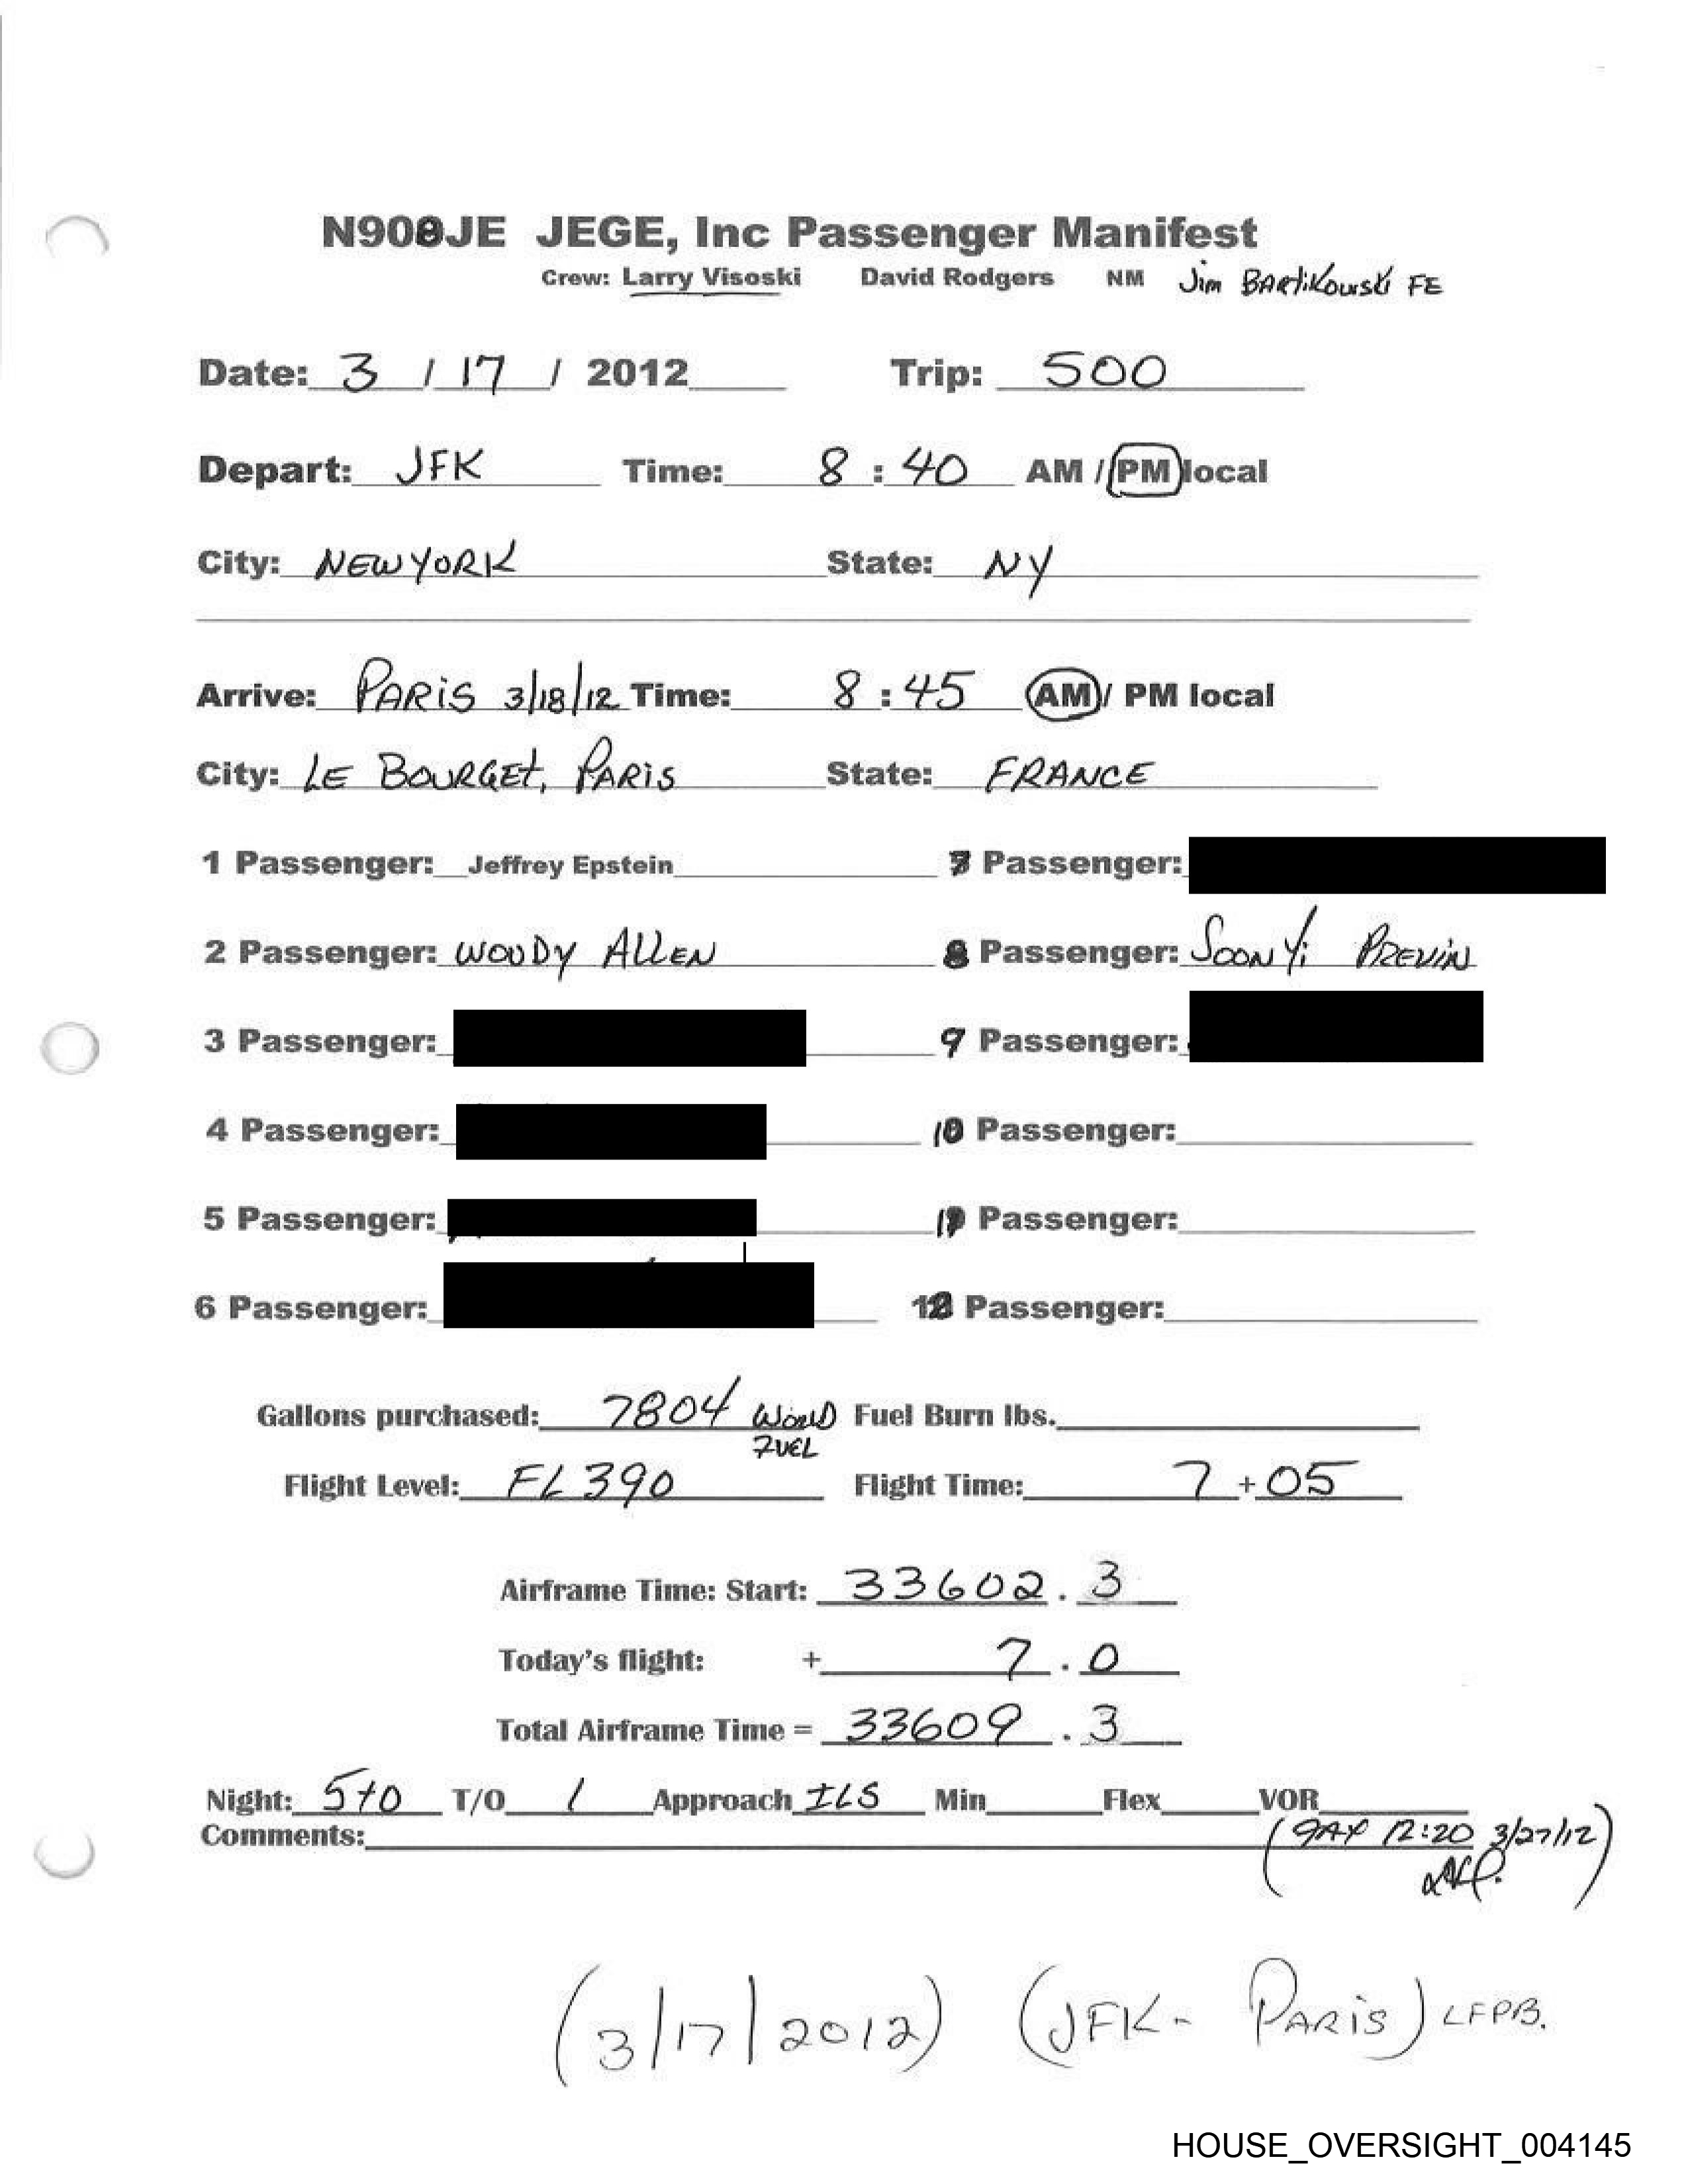 N908JE JEGE, Inc Passenger Manifest
Crew: Larry Visoski David Rodgers NM Jim BARtiKowski FE
Date: 3 / 17 / 2012 Trip: 500
Depart: JFK Time: 8 : 40 AM / PM local
City: NEW YORK State: NY
Arrive: PARiS 3/18/12 Time: 8 : 45 AM / PM local
City: LE BOURGEt, PARiS State: FRANCE
1 Passenger: Jeffrey Epstein 7 Passenger:
2 Passenger: WOODY ALLEN 8 Passenger: SOON Yi PREViN
3 Passenger: 9 Passenger:
4 Passenger: 10 Passenger:
5 Passenger: 11 Passenger:
6 Passenger: 12 Passenger:
Gallons purchased: 7804 WORLD FUEL Fuel Burn lbs.
Flight Level: FL 390 Flight Time: 7 + 05
Airframe Time: Start: 33602 . 3
Today's flight: + 7 . 0
Total Airframe Time = 33609 . 3
Night: 5+0 T/O 1 Approach ILS Min Flex VOR
Comments: ( 12:20 3/27/12 )
(3/17/2012) (JFK - PARiS) LFPB.
HOUSE_OVERSIGHT_004145